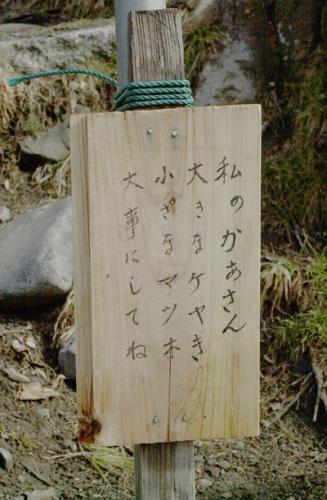 私のかあさん
大きなケヤき
小さなマツ本
大事にしてね